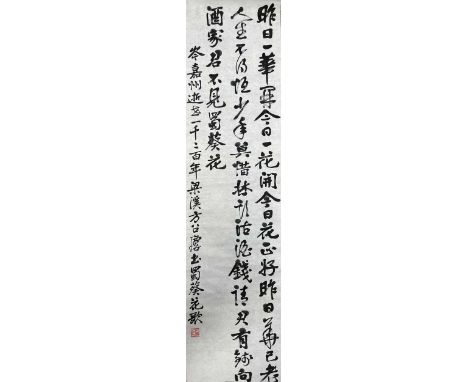 昨日一華開今日一花開今日花正好昨日華已老
人生不得恒少年莫惜牀頭沽酒錢請君有錢向
酒家君不見蜀葵花
岑嘉州逝世一千二百年梁溪方召麐書蜀葵花歌